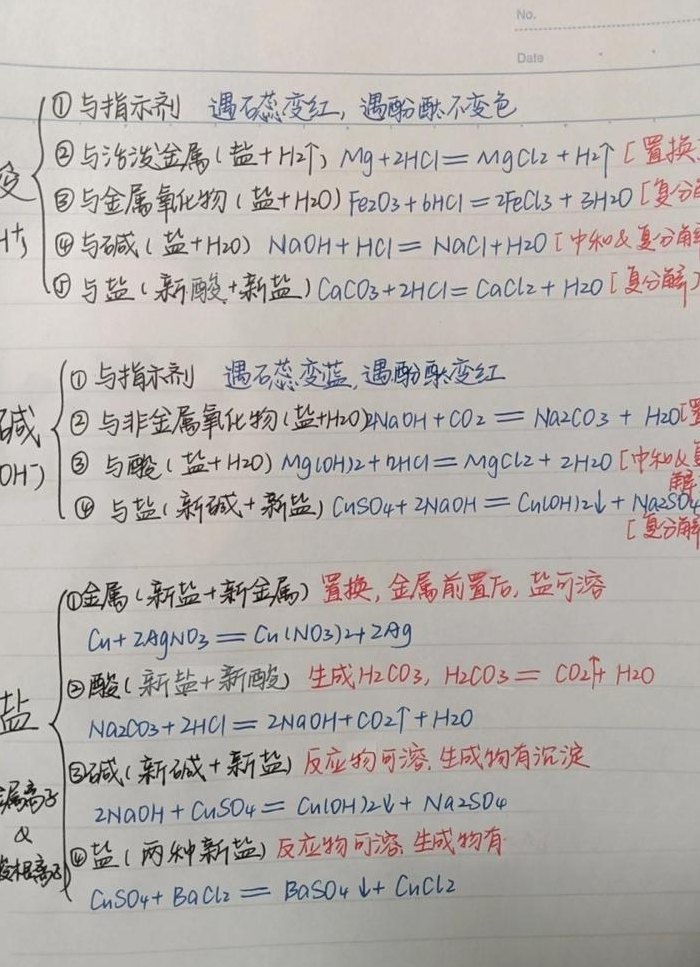 No.
Date
① 与指示剂 遇石蕊变红，遇酚酞不变色
② 与活泼金属(盐+H2↑) Mg+2HCl=MgCl2+H2↑ [置换
③ 与金属氧化物(盐+H2O) Fe2O3+6HCl=2FeCl3+3H2O [复分
H+)
④ 与碱(盐+H2O) NaOH+HCl=NaCl+H2O [中和&复分解
⑤ 与盐(新酸+新盐) CaCO3+2HCl=CaCl2+H2O [复分解]
① 与指示剂 遇石蕊变蓝，遇酚酞变红
碱
② 与非金属氧化物(盐+H2O) 2NaOH+CO2=Na2CO3+H2O [置
OH-)
③ 与酸(盐+H2O) Mg(OH)2+2HCl=MgCl2+2H2O [中和&复
解
④ 与盐(新碱+新盐) CuSO4+2NaOH=Cu(OH)2↓+Na2SO4
[复分解
① 金属(新盐+新金属) 置换，金属前置后，盐可溶
Cu+2AgNO3=Cu(NO3)2+2Ag
② 酸(新盐+新酸) 生成H2CO3，H2CO3=CO2↑+H2O
盐
Na2CO3+2HCl=2NaOH+CO2↑+H2O
③ 碱(新碱+新盐) 反应物可溶，生成物有沉淀
属离子
2NaOH+CuSO4=Cu(OH)2↓+Na2SO4
&
④ 盐(两种新盐) 反应物可溶，生成物有
酸根离子
CuSO4+BaCl2=BaSO4↓+CuCl2